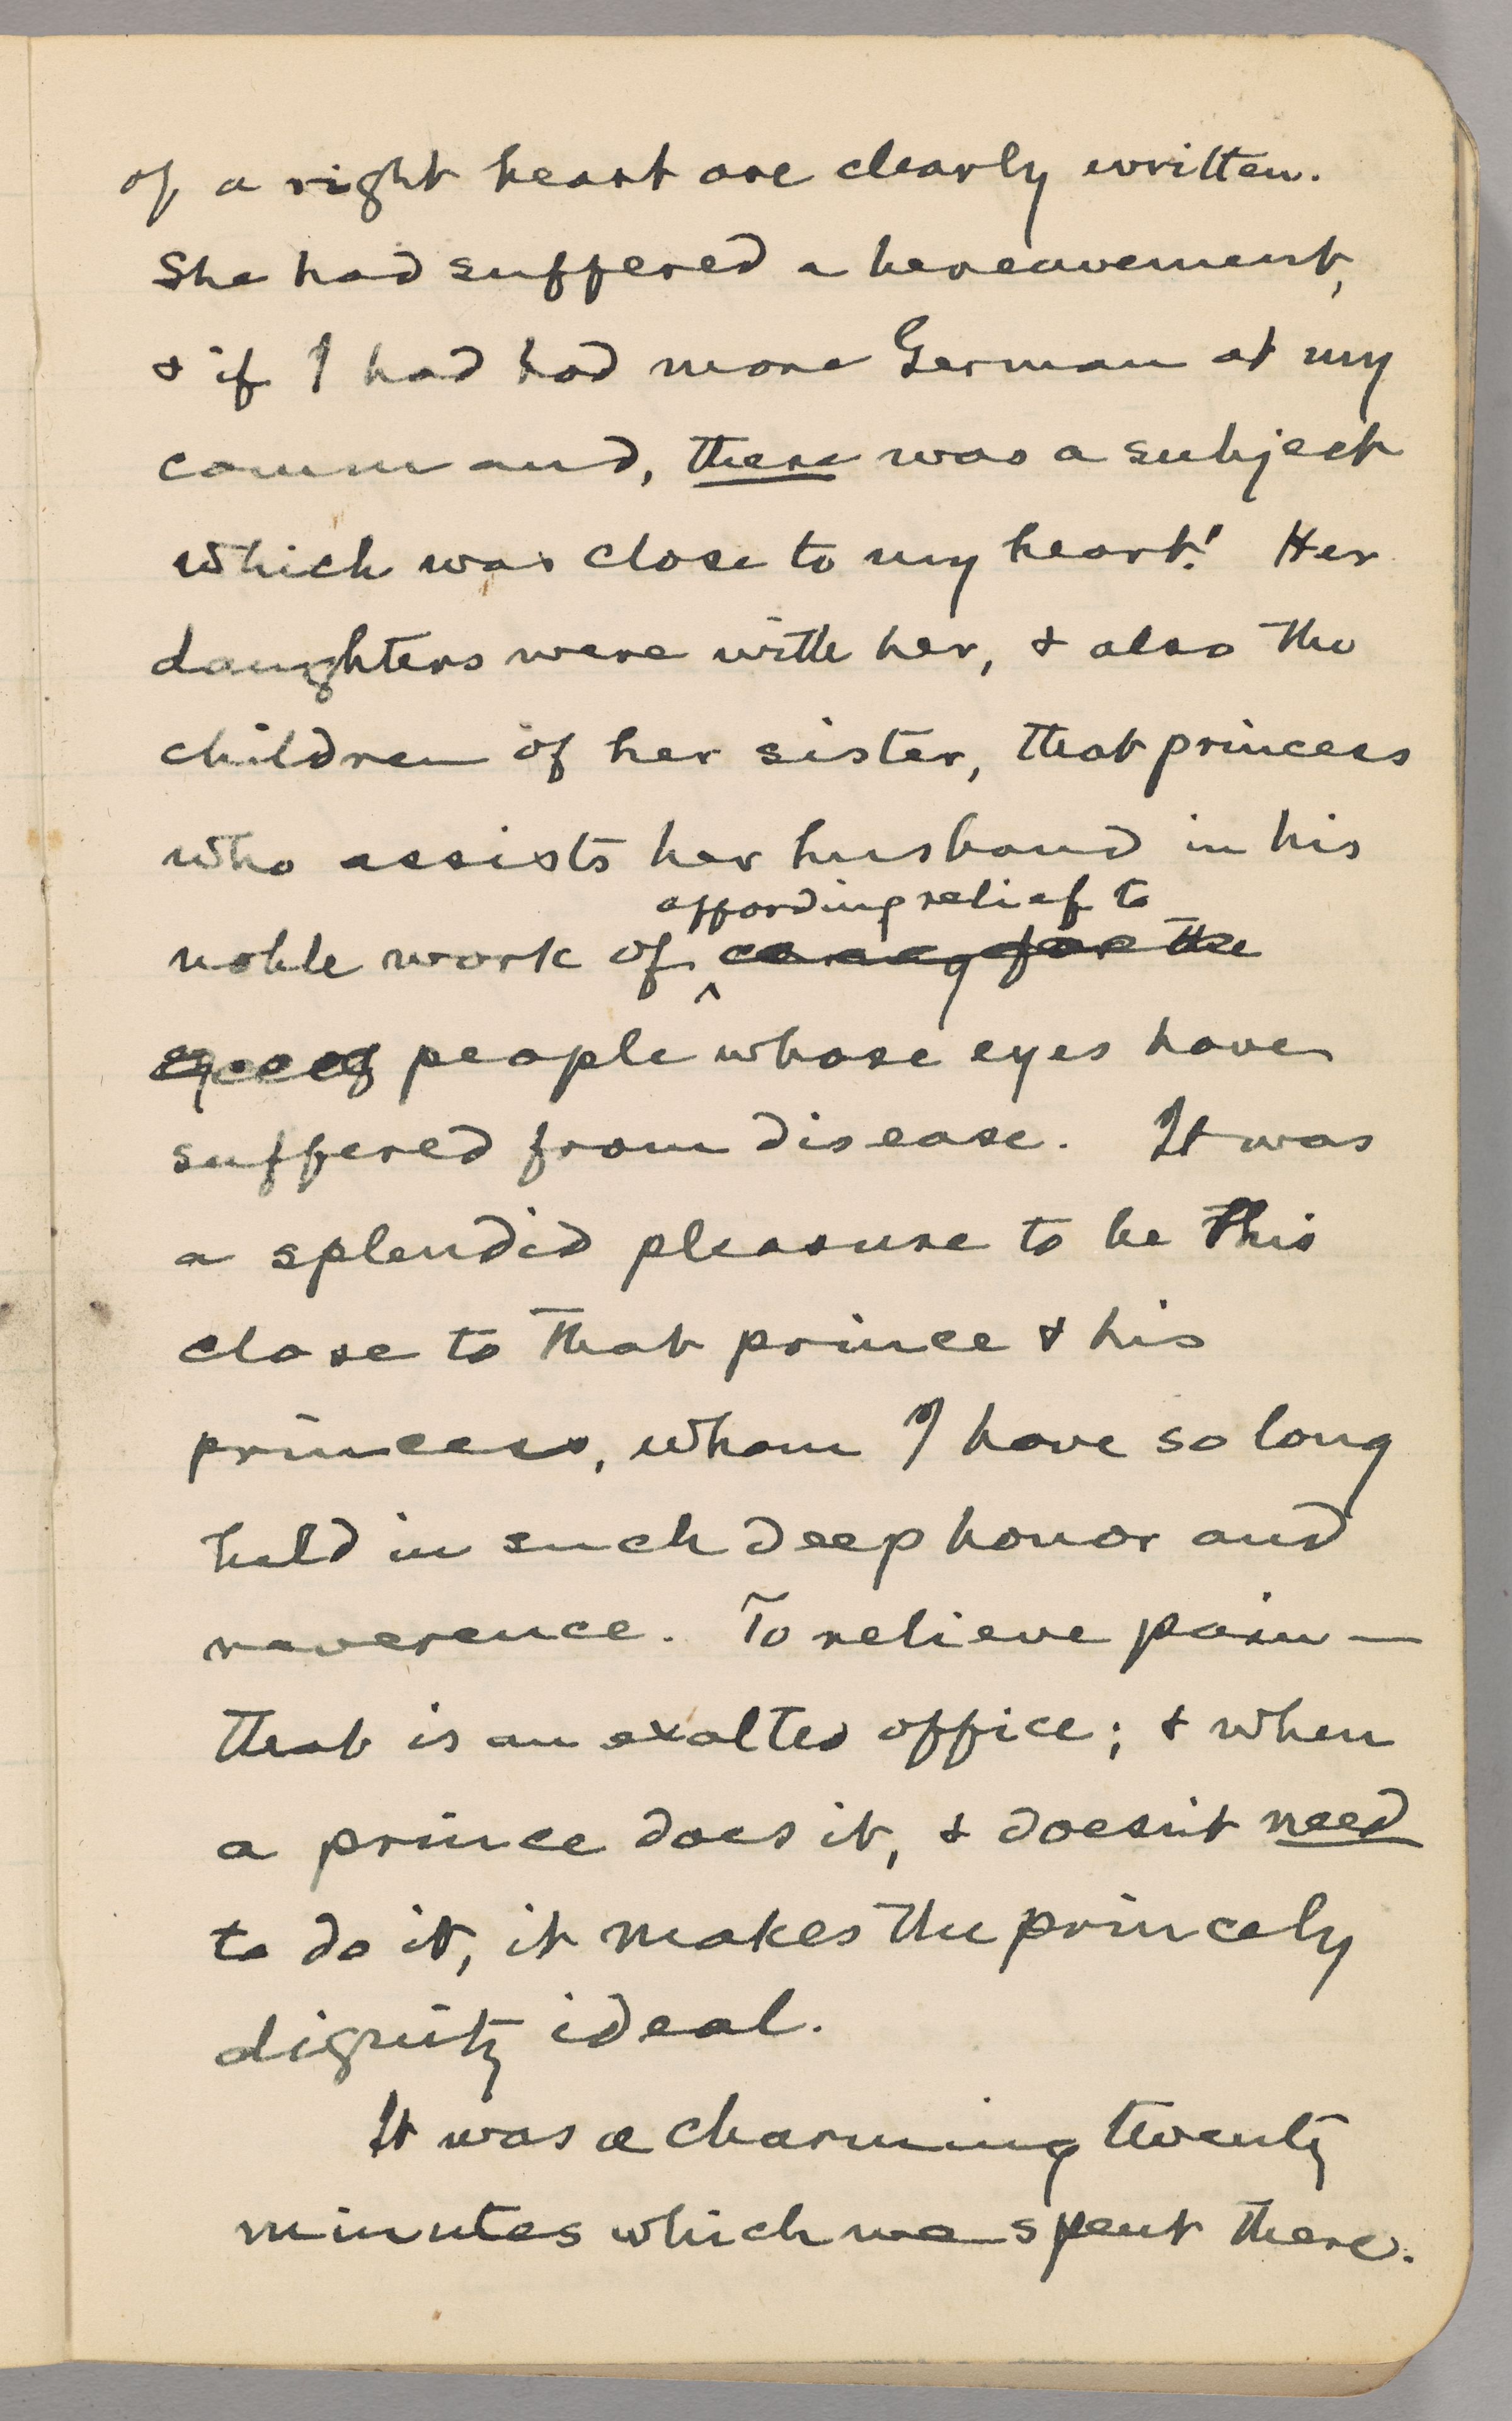 of a right heart are clearly written.
She had suffered a bereavement,
& if I had had more German at my
command, there was a subject
which was close to my heart! Her
daughters were with her, & also the
children of her sister, that princess
who assists her husband in his
affording relief to
noble work of ^ caring for the
people whose eyes have
suffered from disease. It was
a splendid pleasure to be this
close to that prince & his
princess, whom I have so long
held in such deep honor and
reverence. To relieve pain —
that is an exalted office; & when
a prince does it, & doesn't need
to do it, it makes the princely
dignity ideal.
It was a charming twenty
minutes which we spent there.